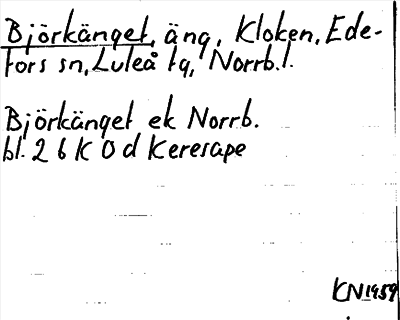 Björkänget, äng, Kloken, Ede-
fors sn, Luleå tg, Norrb.l.
Björkänget ek Norrb.
bl. 26 K 0 d Keresape
KN 1959